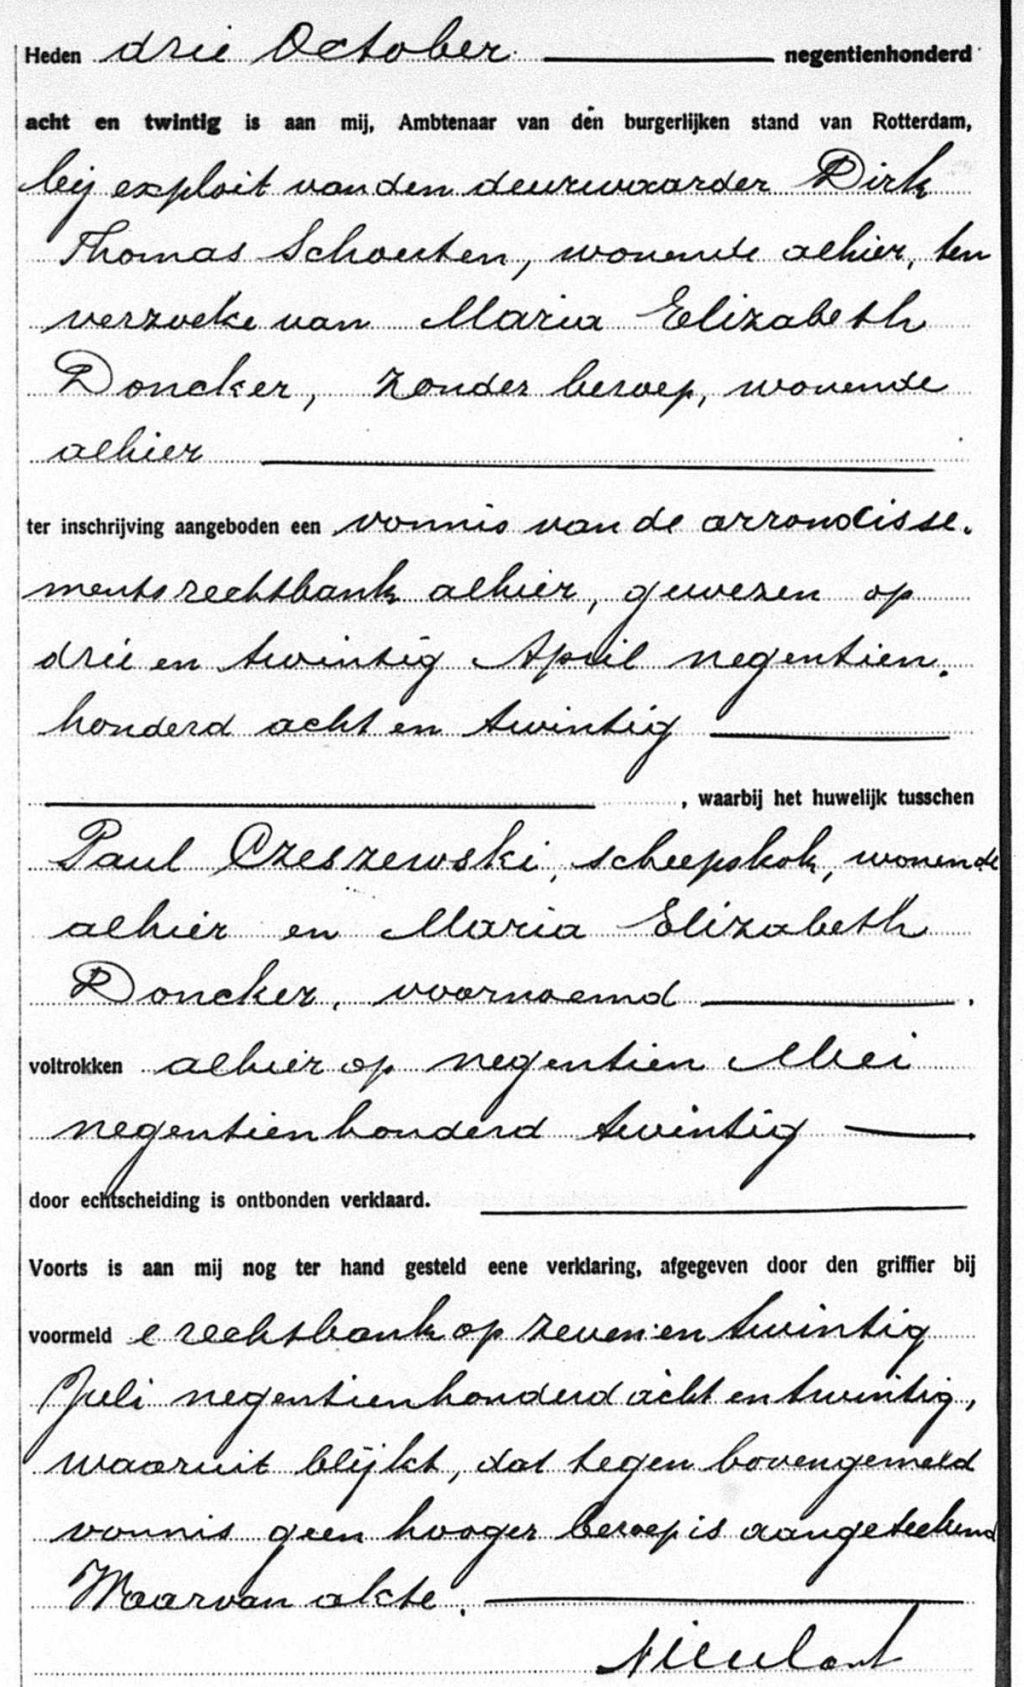 Heden drie October negentienhonderd
acht en twintig is aan mij, Ambtenaar van den burgerlijken stand van Rotterdam,
bij exploit van den deurwaarder Dirk
Thomas Schouten, wonende alhier, ten
verzoeke van Maria Elizabeth
Doncker, zonder beroep, wonende
alhier
ter inschrijving aangeboden een vonnis van de arrondisse-
mentsrechtbank alhier, gewezen op
drie en twintig April negentien-
honderd acht en twintig
, waarbij het huwelijk tusschen
Paul Czeszewski, scheepskok, wonende
alhier en Maria Elizabeth
Doncker, voornoemd
voltrokken alhier op negentien Mei
negentienhonderd twintig
door echtscheiding is ontbonden verklaard.
Voorts is aan mij nog ter hand gesteld eene verklaring, afgegeven door den griffier bij
voormelde rechtbank op zeven en twintig
Juli negentienhonderd acht en twintig,
waaruit blijkt, dat tegen bovengemeld
vonnis geen hooger beroep is aangeteekend
Waarvan akte.